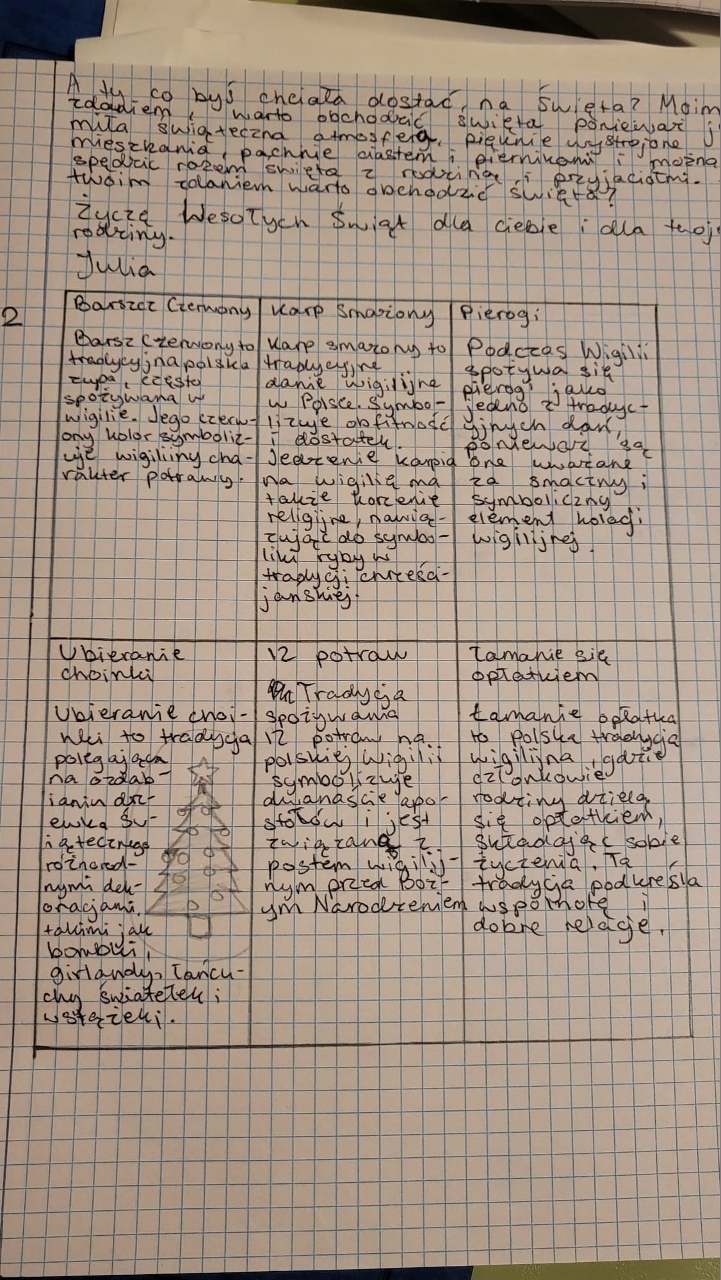 A ty co byś chciała dostać, na święta? Moim
zdaniem, warto obchodzić święta ponieważ j
miła świąteczna atmosfera, pięknie wystrojone
mieszkania, pachnie ciastem i piernikami i można
spędzić razem święta z rodziną, i przyjaciółmi.
twoim zdaniem warto obchodzić święta?
Życzę Wesołych Świąt dla ciebie i dla twoje
rodziny.
Julia
2
Barszcz Czerwony
Barsz Czerwony to
tradycyjna polska
zupa, często
spożywana w
wigilie. Jego czerw-
ony kolor symboliz-
uje wigilijny cha-
rakter potrawy.
Karp Smażony
Karp smażony to
tradycyjne
danie wigilijne
w Polsce. Symbo-
lizuje obfitość
i dostatek.
Jedzenie karpia
na wigilią ma
także korzenie
religijne, nawią-
zując do symbo-
liki ryby w
tradycji chrześci-
jańskiej.
Pierogi
Podczas Wigilii
spożywa się
pierogi jako
jedno z tradyc-
yjnych dań,
ponieważ są
one uważane
za smaczny i
symboliczny
element kolacji
wigilijnej.
Ubieranie
choinki
Ubieranie choi-
nki to tradycja
polegająca
na ozdab-
ianiu drz-
ewka św-
iątecznego
różnorod-
nymi dek-
oracjami,
takimi jak
bombki,
girlandy, łańcu-
chy światełek i
wstążeki.
12 potraw
Tradycja
spożywania
12 potraw na
polskiej wigilii
symbolizuje
dwanaście apo-
stołów i jest
związana z
postem wigilij-
nym przed Boż-
ym Narodzeniem
Łamanie się
opłatkiem
Łamanie opłatka
to polska tradycja
wigilijna, gdzie
członkowie
rodziny dzielą
się opłatkiem,
składając sobie
życzenia. Ta
tradycja podkreśla
wspólnotę i
dobre relacje.